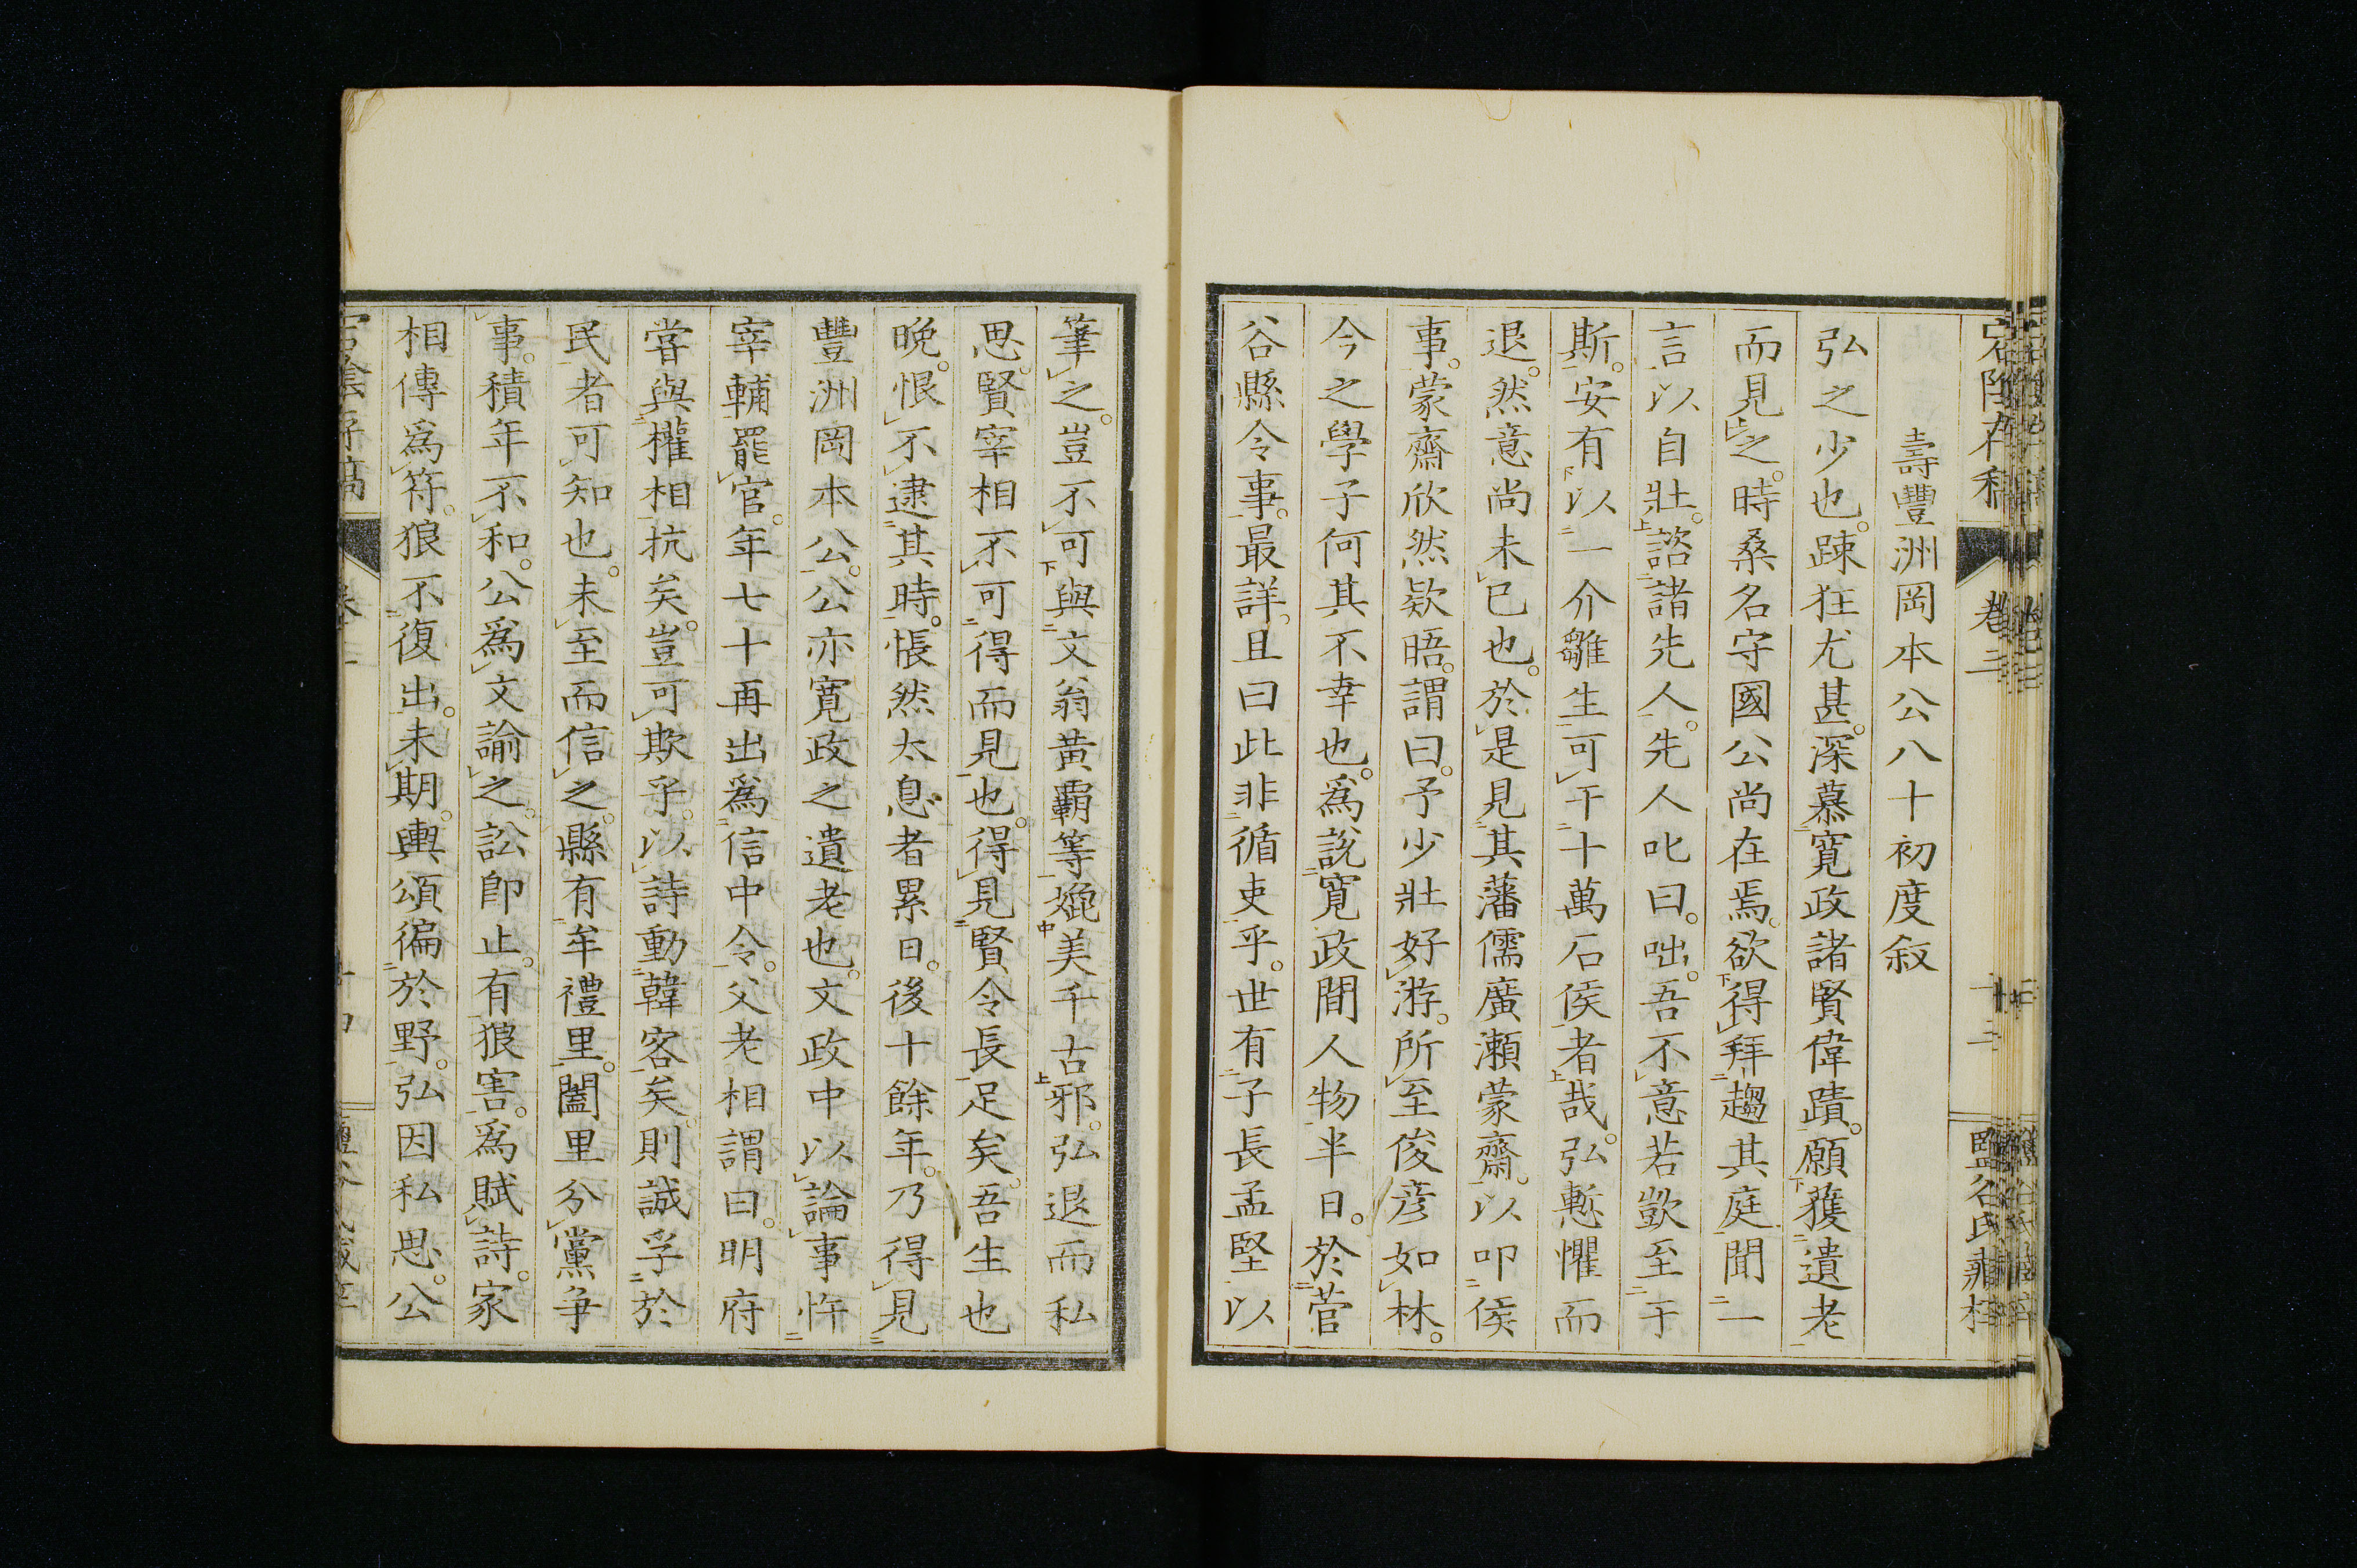 壽豐洲岡本公八十初度叙
弘之少也。踈狂尤甚。深慕寬政諸賢偉蹟。願獲遺老
而見之。時桑名守國公尚在焉。欲得拜趨其庭聞一
言以自壯。諮諸先人。先人叱曰。咄。吾不意若獃至于
斯。安有以一介雛生可干十萬石侯者哉。弘慙懼而
退。然意尚未已也。於是見其藩儒廣瀬蒙齋。以叩侯
事。蒙齋欣然欵晤。謂曰。予少壯好游。所至俊彦如林。
今之學子何其不幸也。爲説寬政間人物半日。於菅
谷縣令事。最詳。且曰此非循吏乎。世有子長孟堅以
筆之。豈不可與文翁黄霸等媲美千古邪。弘退而私
思。賢宰相不可得而見也。得見賢令長足矣。吾生也
晩。恨不逮其時。悵然太息者累日。後十餘年。乃得見
豐洲岡本公。公亦寬政之遺老也。文政中以論事忤
宰輔罷官。年七十再出爲信中令。父老相謂曰。明府
嘗與權相抗矣。豈可欺乎。以詩動韓客矣則誠孚於
民者可知也。未至而信之。縣有牟禮里。闔里分黨争
事。積年不和。公爲文諭之。訟卽止。有狼害。爲賦詩。家
相傳爲符。狼不復出。未期。輿頌徧於野。弘因私思。公